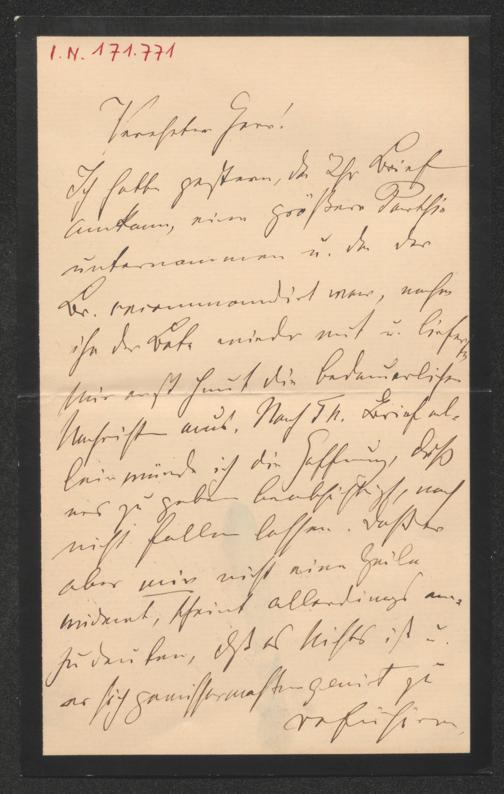 I.N. 171.771
Verehrter Herr!
Ich hatte gestern, da Ihr Brief
ankam, eine größere Parthie
unternommen u. da der
Br. recommandirt war, nahm
ihn der Bote wieder mit u. lieferte
mir erst heut die bedauerliche
Nachricht aus. Nach Ih. Brief al-
lein würde ich die Hoffnung, daß
er es zu geben beabsichtigt, noch
nicht fallen lassen. Daß er
aber mir nicht eine Zeile
widmet, scheint allerdings an-
zudeuten, daß es Nichts ist u.
er sich gewissermaßen genirt zu
refüsiren,